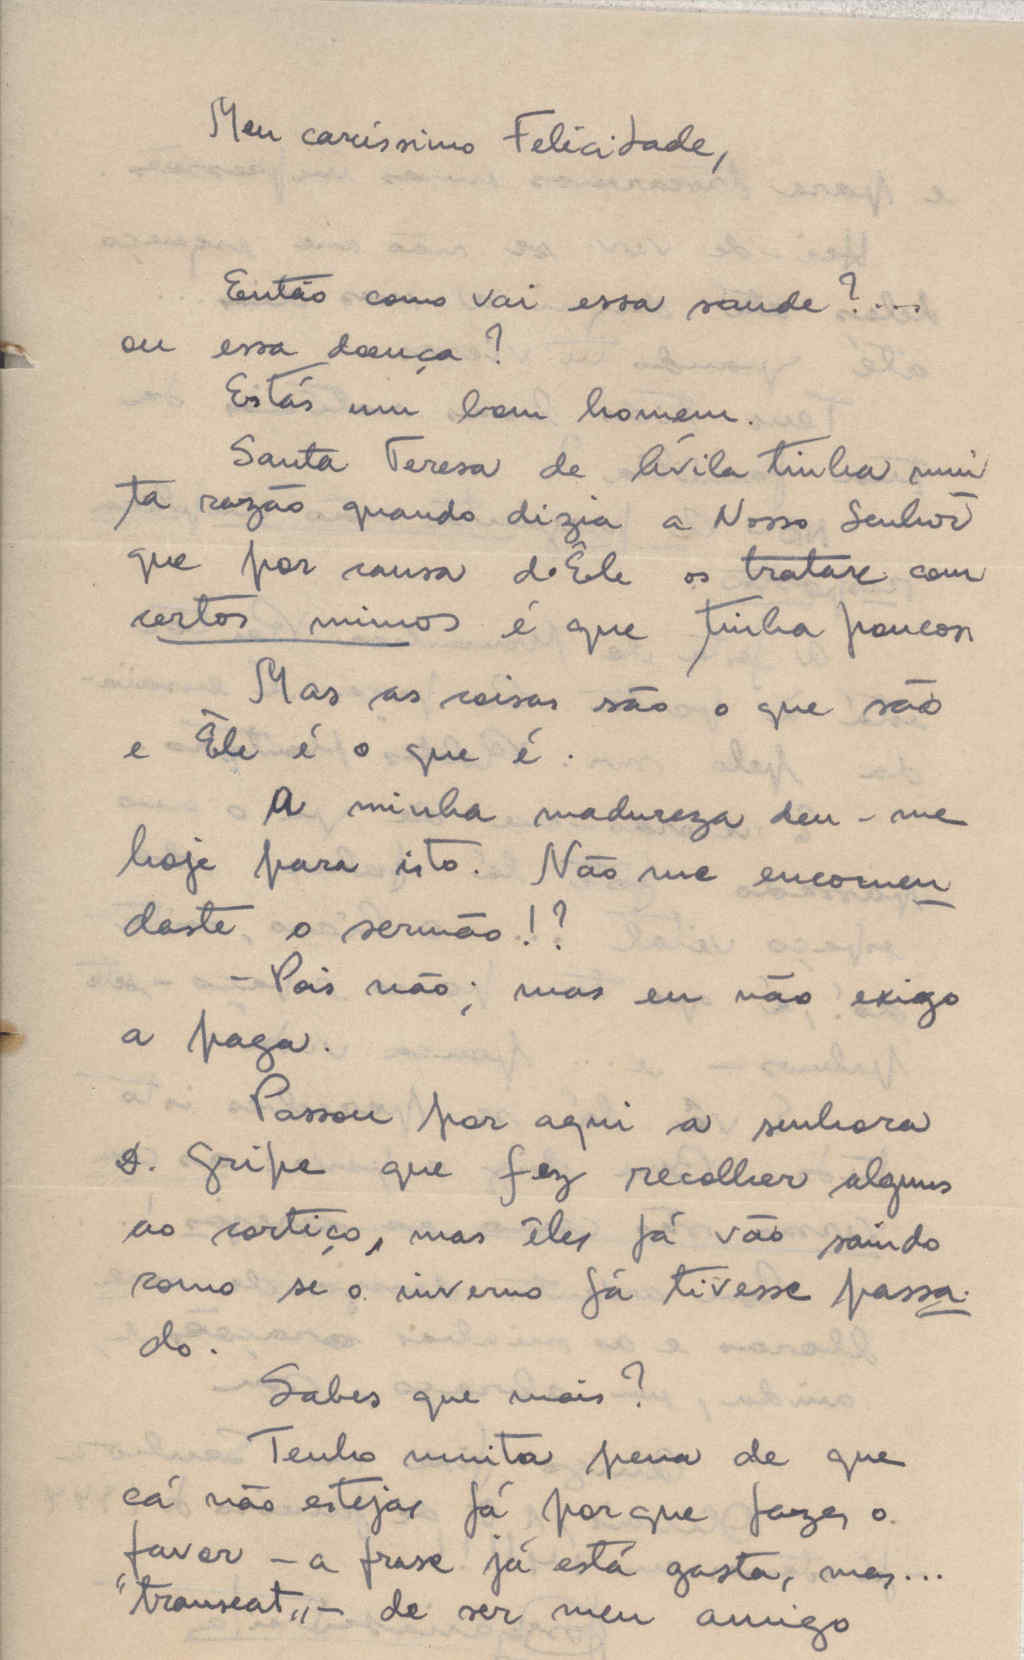 Meu caríssimo Felicidade,
Então como vai essa saude?...
ou essa doença?
Estás um bom homem.
Santa Teresa de Ávila tinha mui
ta razão quando dizia a Nosso Senhor
que por causa d'Êle os tratar com
certos mimos é que tinha poucos
Mas as coisas são o que são
e Êle é o que é.
A minha madureza deu-me
hoje para isto. Não me encomen
daste o sermão!?
- Pois não; mas eu não exigo
a paga.
Passou por aqui a senhora
D. Gripe que fez recolher alguns
ao cortiço, mas êles já vão saindo
como se o inverno já tivesse passa-
do.
Sabes que mais?
Tenho muita pena de que
cá não estejas já porque fazes o
favor - a frase já está gasta, mas...
"transeat" - de ser meu amigo